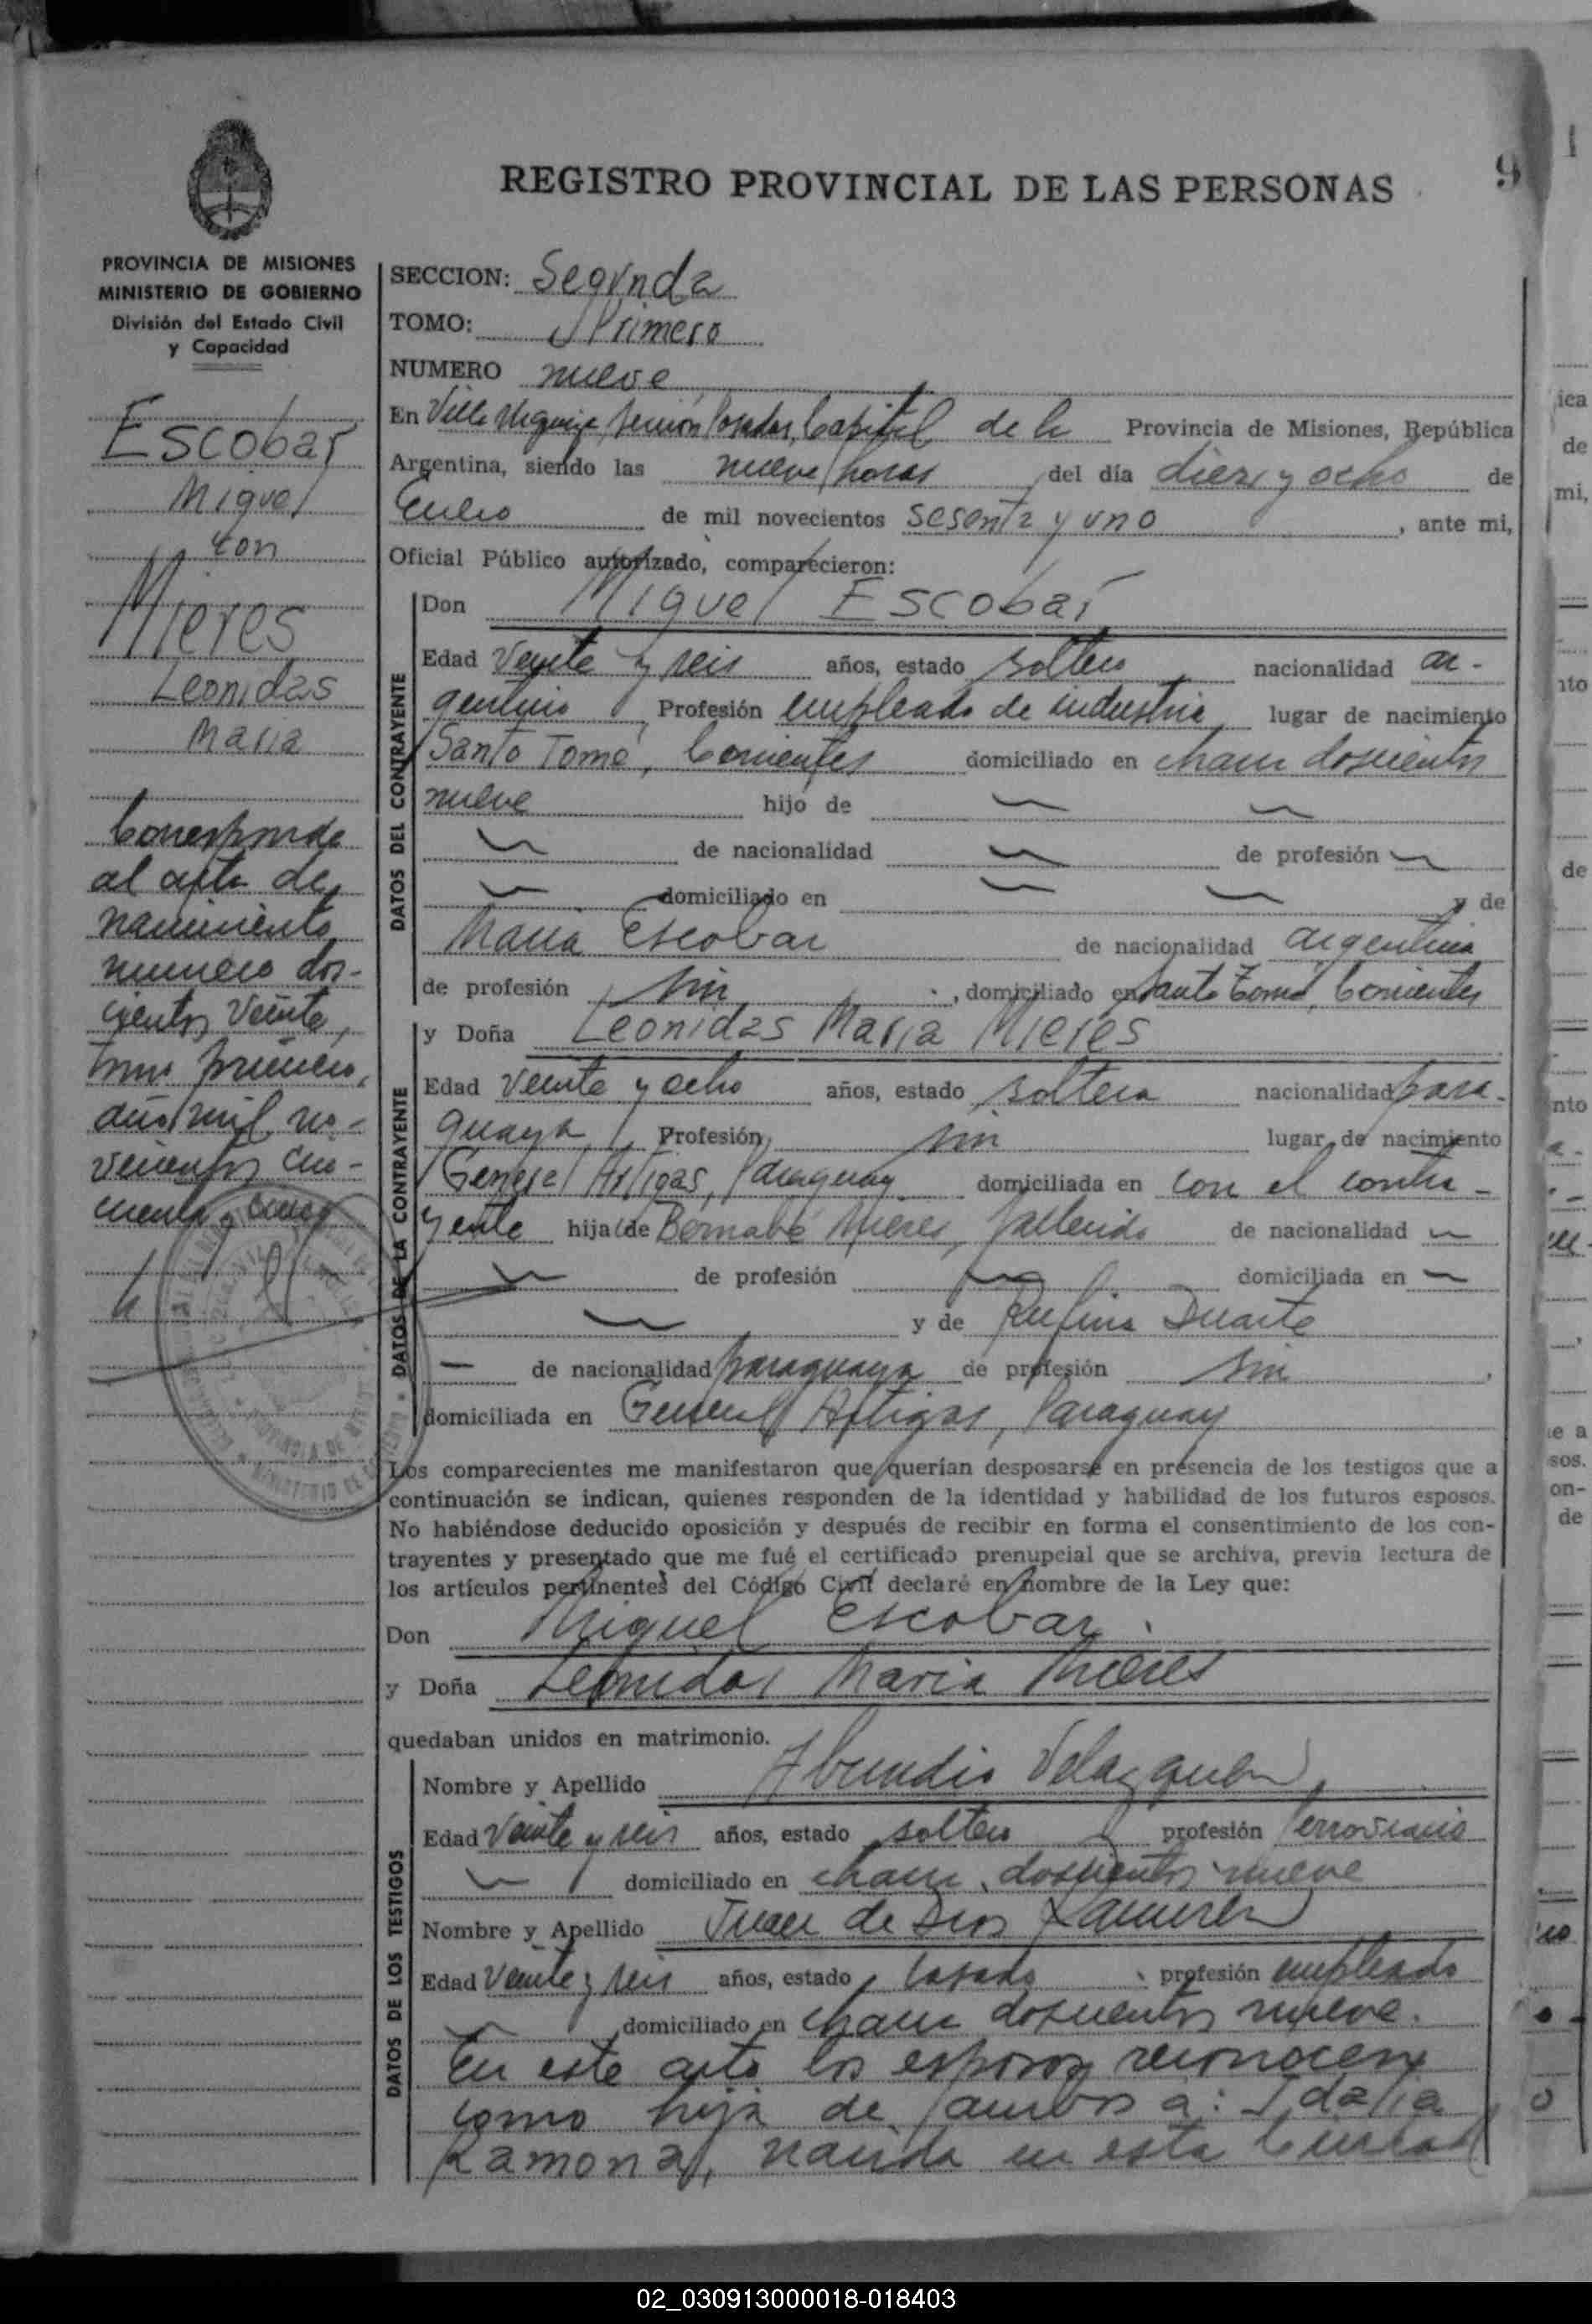 REGISTRO PROVINCIAL DE LAS PERSONAS
9
PROVINCIA DE MISIONES
MINISTERIO DE GOBIERNO
División del Estado Civil
y Capacidad
Escobar
Miguel
con
Mieres
Leonidas
Maria
Corresponde
al acta de
nacimiento
numero dos-
cientos veinte,
tomo primero,
año mil no-
vecientos cin-
cuenta y cinco
SECCION: Segunda
TOMO: Primero
NUMERO nueve
En Villa Urquiza, sección Posadas, Capital de la Provincia de Misiones, República
Argentina, siendo las nueve horas del día diez y ocho de
Enero de mil novecientos sesenta y uno, ante mi,
Oficial Público autorizado, comparecieron:
DATOS DEL CONTRAYENTE
Don Miguel Escobar
Edad veinte y seis años, estado soltero nacionalidad ar-
gentino Profesión empleado de industria lugar de nacimiento
Santo Tomé, Corrientes domiciliado en chacra doscientos
nueve hijo de
de nacionalidad de profesión
domiciliado en y de
Maria Escobar de nacionalidad argentina
de profesión sin, domiciliado en Santo Tomé, Corrientes
DATOS DE LA CONTRAYENTE
y Doña Leonidas Maria Mieres
Edad veinte y ocho años, estado soltera nacionalidad para-
guaya Profesión sin lugar de nacimiento
General Artigas, Paraguay domiciliada en con el contra-
yente hija de Bernabé Mieres, fallecido de nacionalidad
de profesión domiciliada en
y de Rufina Duarte
de nacionalidad paraguaya de profesión sin
domiciliada en General Artigas, Paraguay
Los comparecientes me manifestaron que querían desposarse en presencia de los testigos que a
continuación se indican, quienes responden de la identidad y habilidad de los futuros esposos.
No habiéndose deducido oposición y después de recibir en forma el consentimiento de los con-
trayentes y presentado que me fué el certificado prenupcial que se archiva, previa lectura de
los artículos pertinentes del Código Civil declaré en nombre de la Ley que:
Don Miguel Escobar
y Doña Leonidas Maria Mieres
quedaban unidos en matrimonio.
DATOS DE LOS TESTIGOS
Nombre y Apellido Abundio Velazquez
Edad veinte y seis años, estado soltero profesión ferroviario
domiciliado en chacra doscientos nueve
Nombre y Apellido Juan de Dios Ramirez
Edad veinte y seis años, estado casado profesión empleado
domiciliado en chacra doscientos nueve.
En este acto los esposos reconocen
como hija de ambos a: Idalia
Ramona, nacida en esta Ciudad
02_030913000018-018403